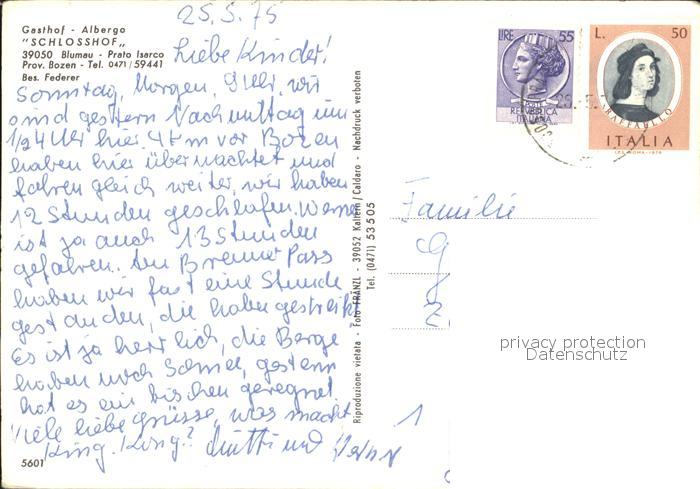 Gasthof - Albergo
"SCHLOSSHOF„
39050 Blumau - Prato Isarco
Prov. Bozen - Tel. 0471/59441
Bes. Federer
25.5.75
Liebe Kinder!
Sonntag, Morgen, 9 Uhr, wir
sind gestern Nachmittag um
1/2 4 Uhr hier 4 km vor Bozen
haben hier übernachtet und
fahren gleich weiter, wir haben
12 Stunden geschlafen. Werner
ist ja auch 13 Stunden
gefahren. Am Brenner Pass
haben wir fast eine Stunde
gestanden, die haben gestreikt
Es ist ja herrlich, die Berge
haben noch Schnee, gestern
hat es ein bischen geregnet
Viele liebe Grüsse, was macht
King-Kong? Mutti und
5601
Riproduzione vietata - Foto FRÄNZL - 39052 Kaltern/Caldaro - Nachdruck verboten
Tel. (0471) 53505
LIRE 55
POSTE
REPVBBLICA
ITALIANA
L. 50
RAFFAELLO
ITALIA
Familie
1
privacy protection
Datenschutz